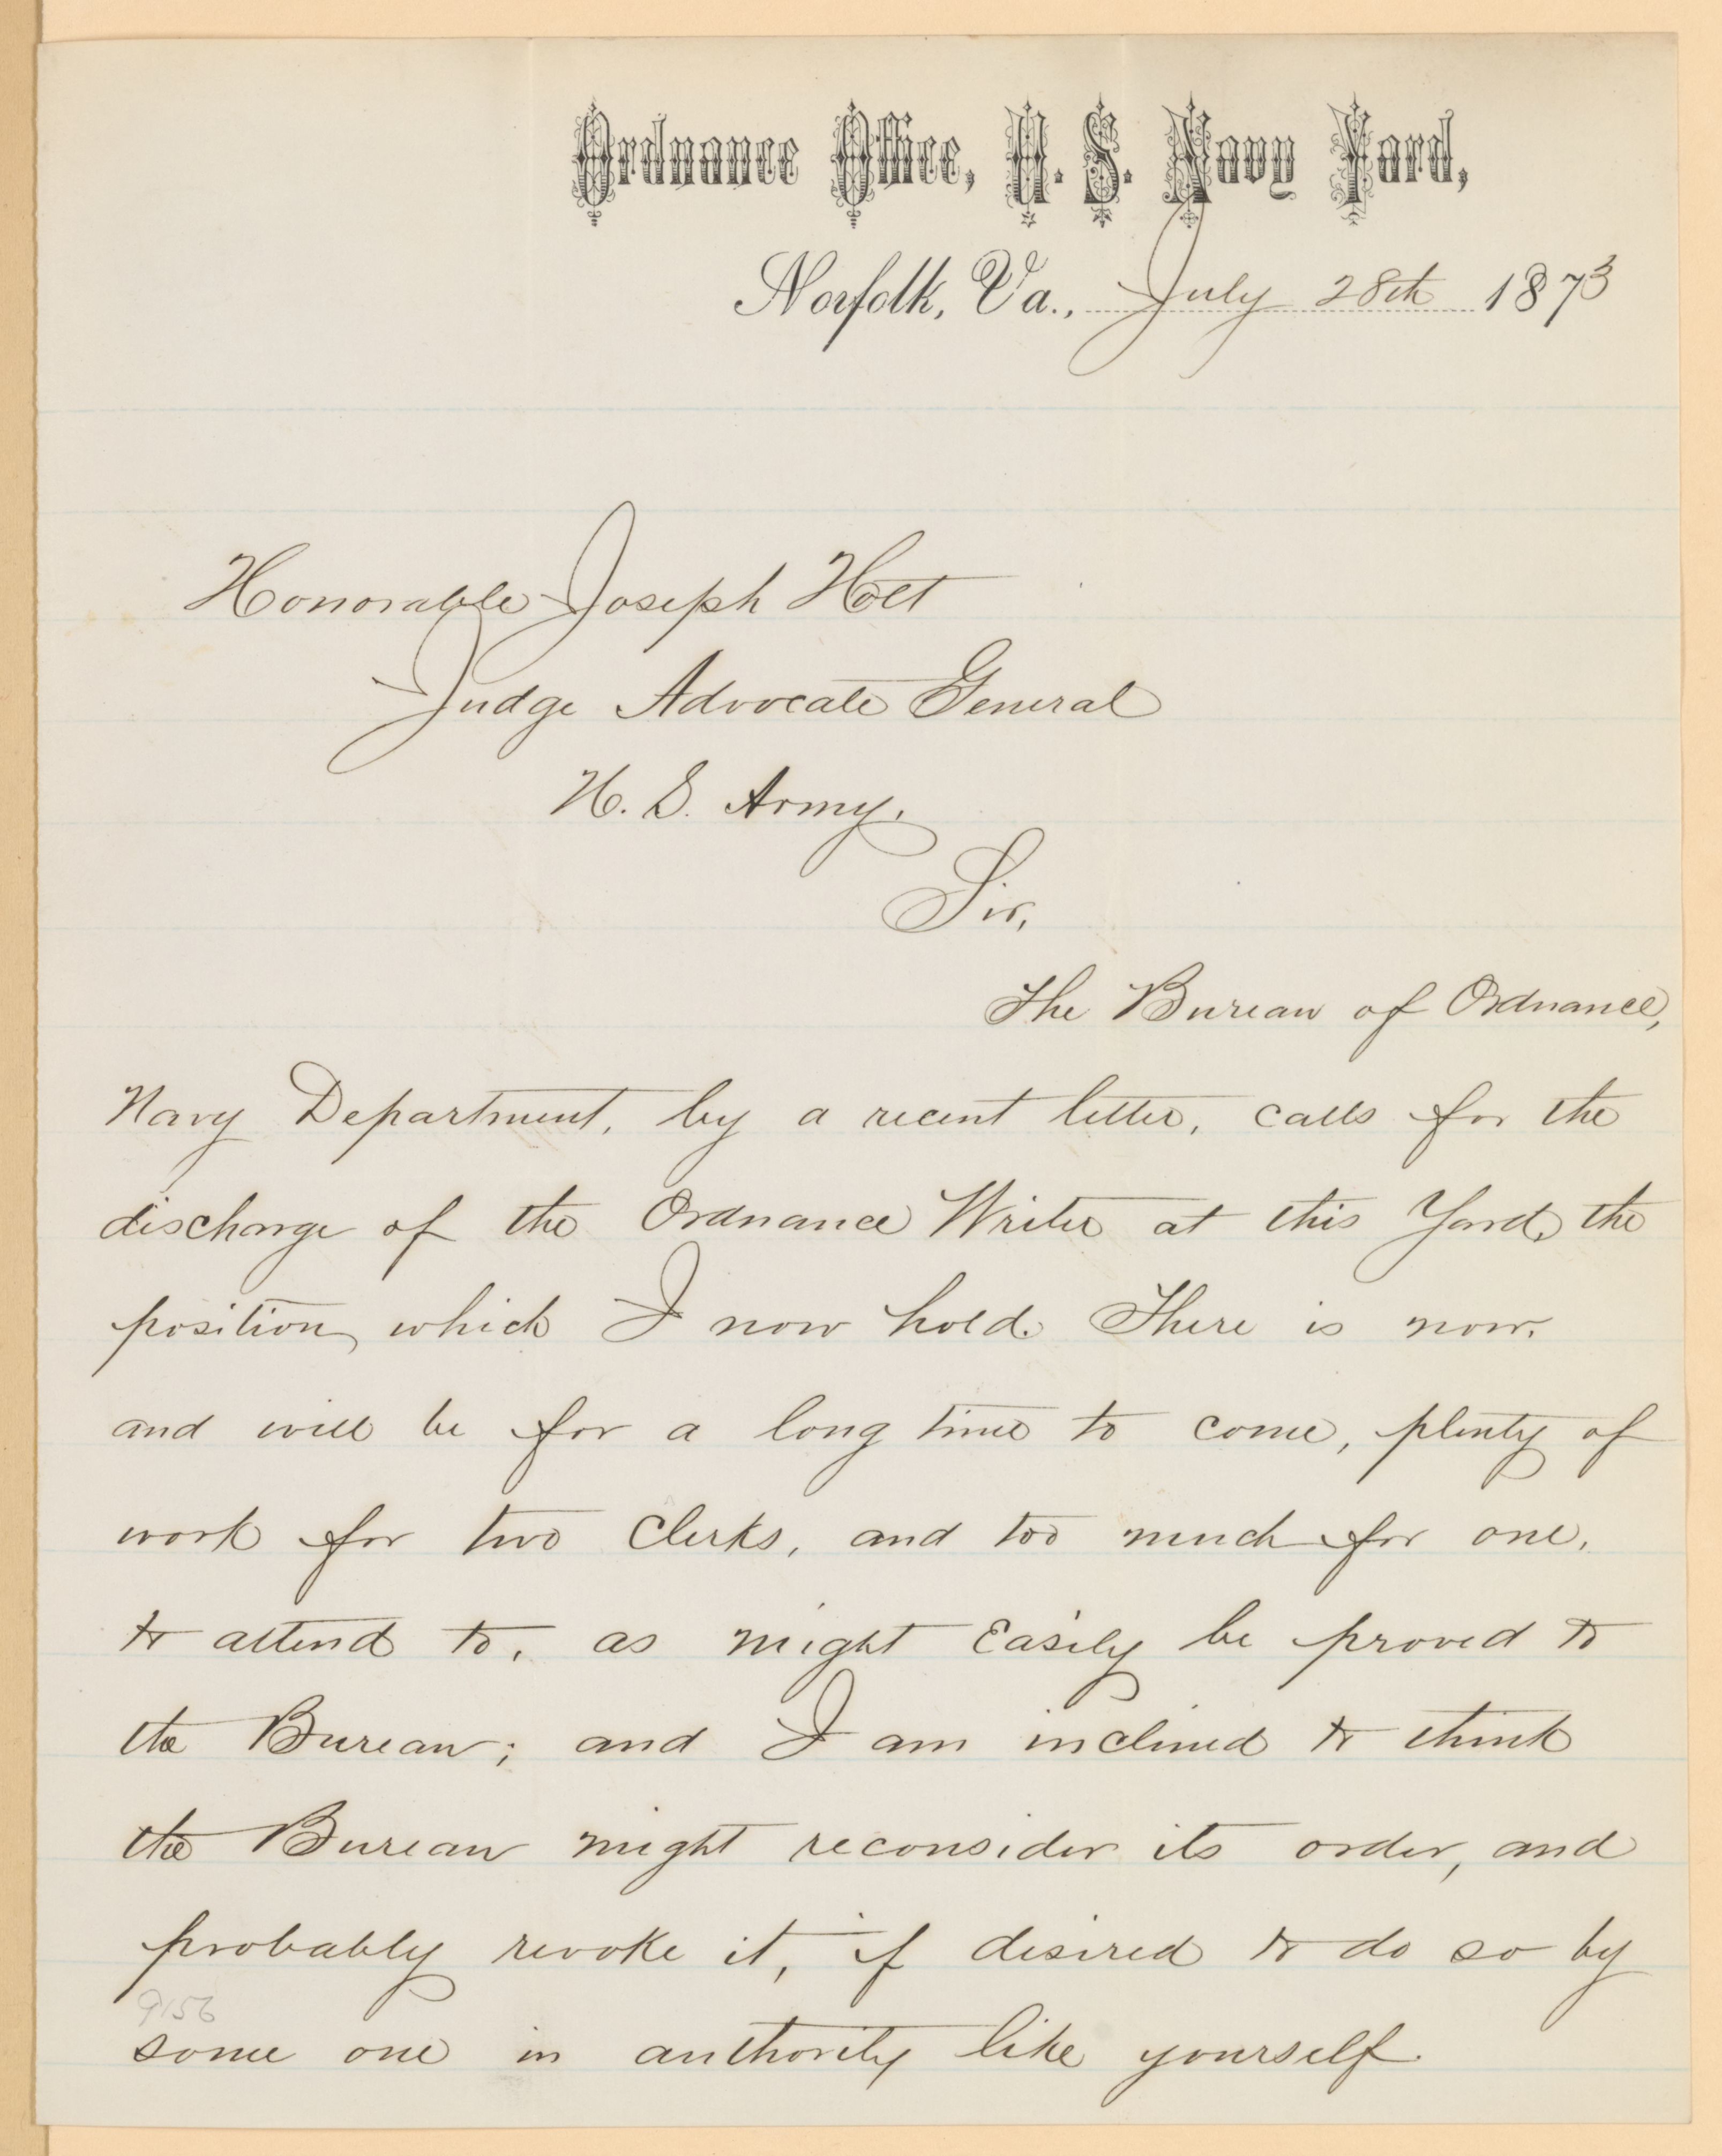 Ordnance Office, U. S. Navy Yard,
Norfolk, Va., July 28th 1873
Honorable Joseph Holt
Judge Advocate General
U. S. Army.
Sir,
The Bureau of Ordnance,
Navy Department, by a recent letter, calls for the
discharge of the Ordnance Writer at this Yard, the
position which I now hold. There is now,
and will be for a long time to come, plenty of
work for two Clerks, and too much for one,
to attend to, as might easily be proved to
the Bureau; and I am inclined to think
the Bureau might reconsider its order, and
probably revoke it, if desired to do so by
9156
some one in authority like yourself.